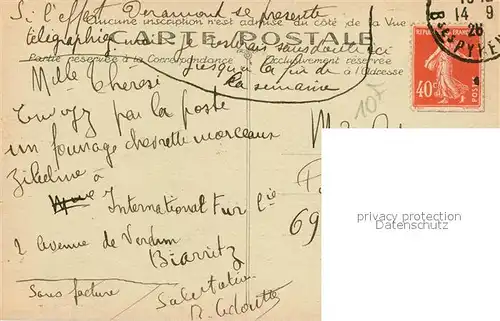 Si l'effet Deramond se présente
Aucune inscription n'est admise au côté de la Vue
télégraphiez moi je resterai sans doute ici
CARTE POSTALE
Partie réservée à la Correspondance
Exclusivement réservée
à l'Adresse
jusqu'à la fin de
la semaine
Mlle Thérèse
Envoyez par la poste
un fourrage chevrette morceaux
zibeline à
International Fur Cie
2 avenue de Verdun
Biarritz
Sans facture
Salutations
10F
69
14 9
28
Bses PYRÉN
REPUBLIQUE FRANÇAISE
40c
POSTES
privacy protection
www.oldthing.com